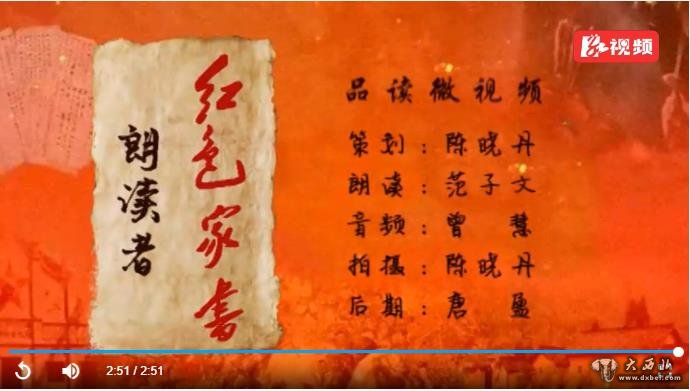 红视频
红色家书
朗读者
品读微视频
策划：陈晓丹
朗读：范子文
音频：曾慧
拍摄：陈晓丹
后期：唐盈
2:51 / 2:51
大西北
www.dxbei.com